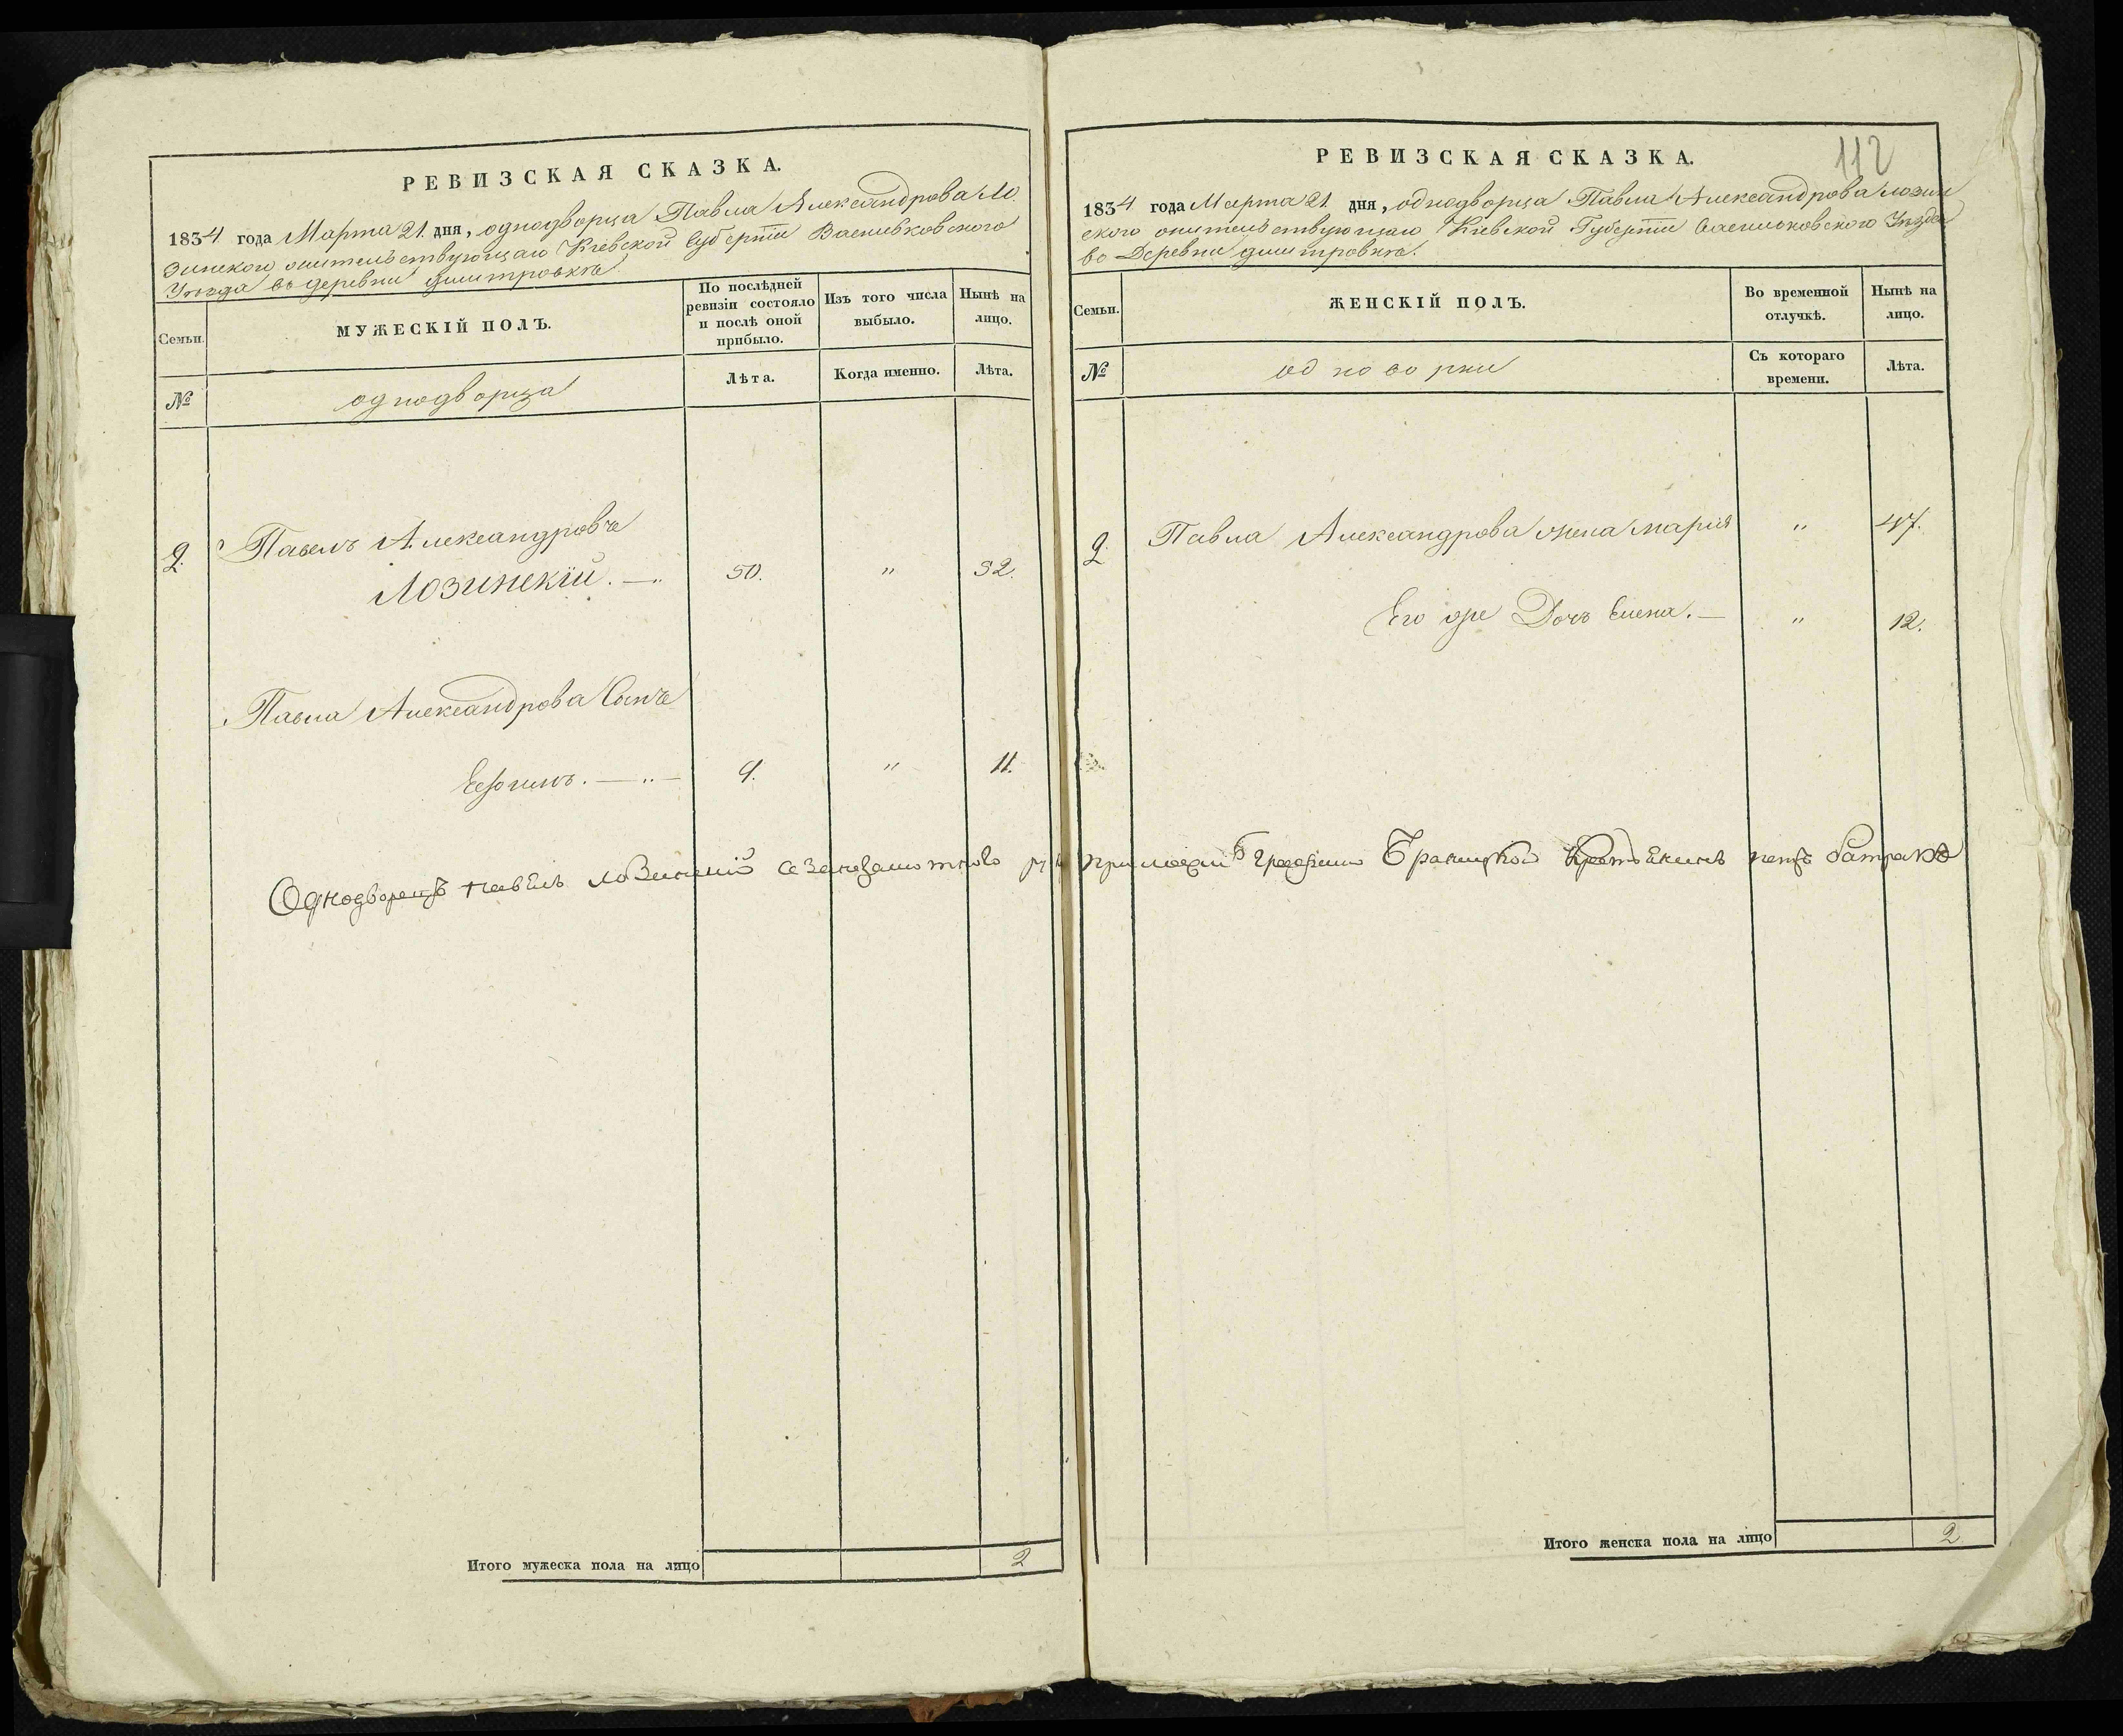 РЕВИЗСКАЯ СКАЗКА.
1834 года Марта 21. дня, однодворца Павла Александрова Ло
зинского жительствующаго Кіевской Губерніи Васильковского
Уезда въ деревни Дмитровкѣ.
Семьи.
МУЖЕСКІЙ ПОЛЪ.
По послѣдней ревизіи состояло и послѣ оной прибыло.
Изъ того числа выбыло.
Нынѣ на лицо.
№
однодворца
Лѣта.
Когда именно.
Лѣта.
2. Павелъ Александровъ
Лозинскій. — 50. " 52.
Павла Александрова Сынъ
Ефимъ. — " — 9. " 11.
Итого мужеска пола на лицо 2
112
РЕВИЗСКАЯ СКАЗКА.
1834 года Марта 21. дня, однодворца Павла Александрова Лозин
ского жительствующаго Кіевской Губерніи Васильковского Уезда
во Деревни Дмитровкѣ.
Семьи.
ЖЕНСКІЙ ПОЛЪ.
Во временной отлучкѣ.
Нынѣ на лицо.
№
Съ котораго времени.
Лѣта.
2 Павла Александрова жена Марія " 47.
Его же Дочь Елена. — " 12.
Однодворецъ Павелъ Лозинскій
Браницкой
Итого женска пола на лицо 2